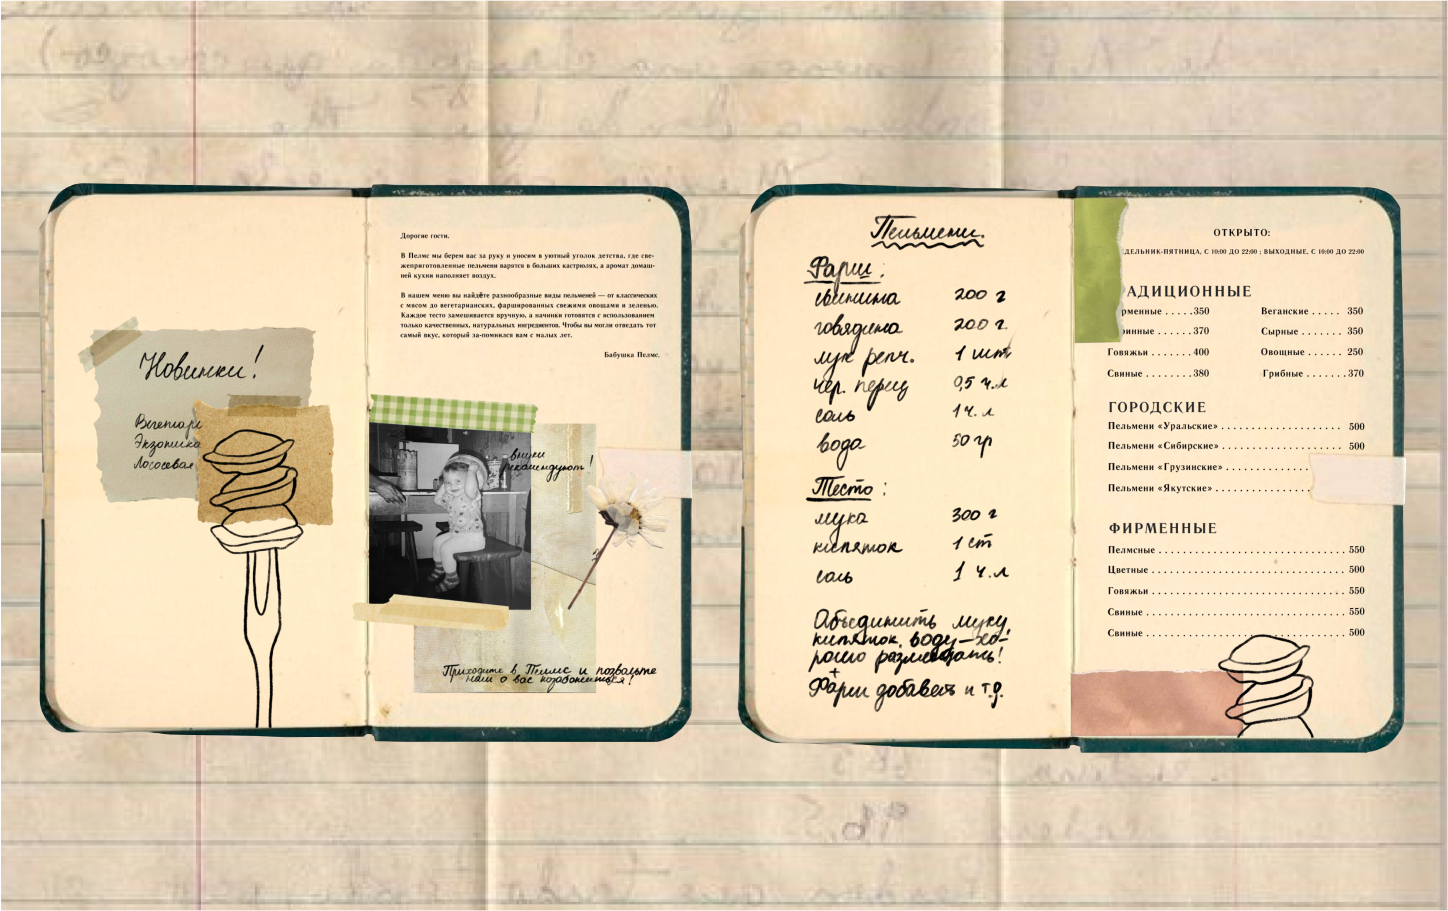 Новинки!
Экзотика
Лососевая
Дорогие гости.
В Пелмс мы берем вас за руку и уносим в уютный уголок детства, где све-
жеприготовленные пельмени варятся в больших кастрюлях, а аромат домаш-
ней кухни наполняет воздух.
В нашем меню вы найдёте разнообразные виды пельменей — от классических
с мясом до вегетарианских, фаршированных свежими овощами и зеленью.
Каждое тесто замешивается вручную, а начинки готовятся с использованием
только качественных, натуральных ингредиентов. Чтобы вы могли отведать тот
самый вкус, который за-помнился вам с малых лет.
Бабушка Пелмс.
внуки
рекомендуют!
Приходите в Пелмс и позвольте
нам о вас позаботиться!
Пельмени.
Фарш:
свинина 200 г
говядина 200 г.
лук репч. 1 шт.
чер. перец 0,5 ч.л
соль 1 ч.л
вода 50 гр
Тесто:
мука 300 г
кипяток 1 ст
соль 1 ч.л
Объединить муку,
кипяток, воду — хо-
рошо размешать!
+
Фарш добавить и т.д.
ОТКРЫТО:
ДЕЛЬНИК-ПЯТНИЦА, С 10:00 ДО 22:00 ; ВЫХОДНЫЕ, С 10:00 ДО 22:00
АДИЦИОННЫЕ
рменные . . . . . 350 Веганские . . . . . 350
ринные . . . . . . . 370 Сырные . . . . . . 350
Говяжьи . . . . . . . 400 Овощные . . . . . . 250
Свиные . . . . . . . . 380 Грибные . . . . . . . . 370
ГОРОДСКИЕ
Пельмени «Уральские» . . . . . . . . . . . . . . . . . . . . . 500
Пельмени «Сибирские» . . . . . . . . . . . . . . . . . . . . . 500
Пельмени «Грузинские» . . . . . . . . . . . . . .
Пельмени «Якутские» . . . . . . . . . . . . . . . .
ФИРМЕННЫЕ
Пелмсные . . . . . . . . . . . . . . . . . . . . . . . . . . . . . . . . 550
Цветные . . . . . . . . . . . . . . . . . . . . . . . . . . . . . . . . . 500
Говяжьи . . . . . . . . . . . . . . . . . . . . . . . . . . . . . . . . . 550
Свиные . . . . . . . . . . . . . . . . . . . . . . . . . . . . . . . . . . 550
Свиные . . . . . . . . . . . . . . . . . . . . . . . . . . . . . . . . . . 500